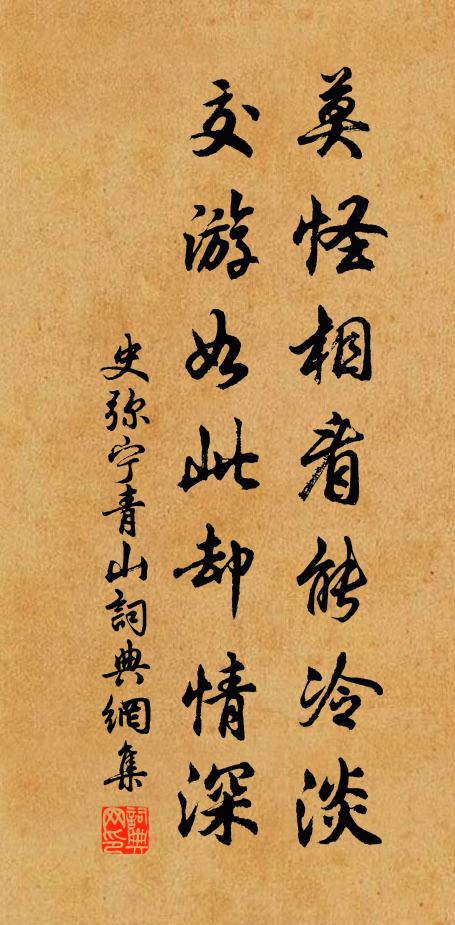 莫怪相看能冷淡
交游如此却情深
史弥宁青山詞典網集
詞典網印